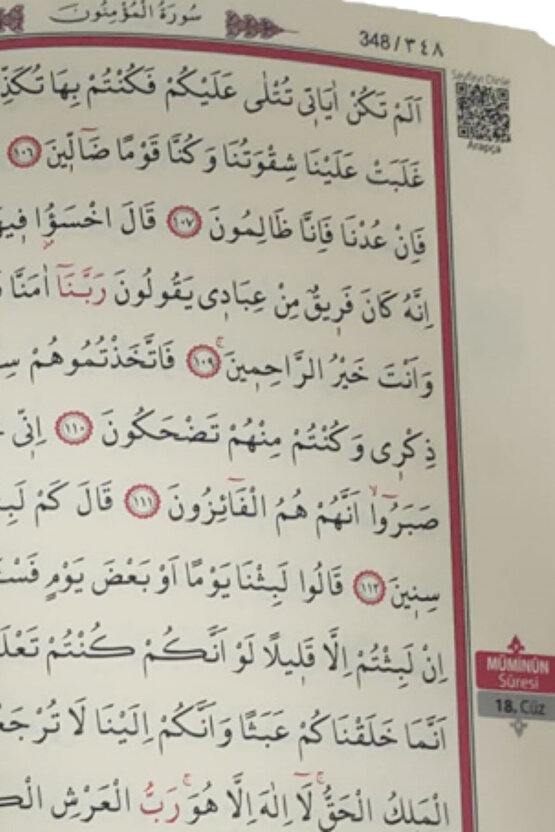 سُورَةُ الْمُؤْمِنُونَ
348/٣٤٨
Sayfayı Dinle
Arapça
اَلَمْ تَكُنْ اٰيَات۪ي تُتْلٰى عَلَيْكُمْ فَكُنْتُمْ بِهَا
غَلَبَتْ عَلَيْنَا شِقْوَتُنَا وَكُنَّا قَوْمًا ضَٓالّ۪ينَ ﴿١٠٦﴾
فَاِنْ عُدْنَا فَاِنَّا ظَالِمُونَ ﴿١٠٧﴾ قَالَ اخْسَؤُ۫ا
اِنَّهُ كَانَ فَر۪يقٌ مِنْ عِبَاد۪ي يَقُولُونَ رَبَّنَٓا اٰمَنَّا
وَاَنْتَ خَيْرُ الرَّاحِم۪ينَۚ ﴿١٠٩﴾ فَاتَّخَذْتُمُوهُمْ
ذِكْر۪ي وَكُنْتُمْ مِنْهُمْ تَضْحَكُونَ ﴿١١٠﴾ اِنّ۪ي
صَبَرُٓواۙ اَنَّهُمْ هُمُ الْفَٓائِزُونَ ﴿١١١﴾ قَالَ كَمْ
سِن۪ينَ ﴿١١٢﴾ قَالُوا لَبِثْنَا يَوْمًا اَوْ بَعْضَ يَوْمٍ
اِنْ لَبِثْتُمْ اِلَّا قَل۪يلًا لَوْ اَنَّكُمْ كُنْتُمْ
اَنَّمَا خَلَقْنَاكُمْ عَبَثًا وَاَنَّكُمْ اِلَيْنَا لَا
الْمَلِكُ الْحَقُّۚ لَٓا اِلٰهَ اِلَّا هُوَۚ رَبُّ الْعَرْشِ
MÜMİNÛN
Sûresi
18. Cüz